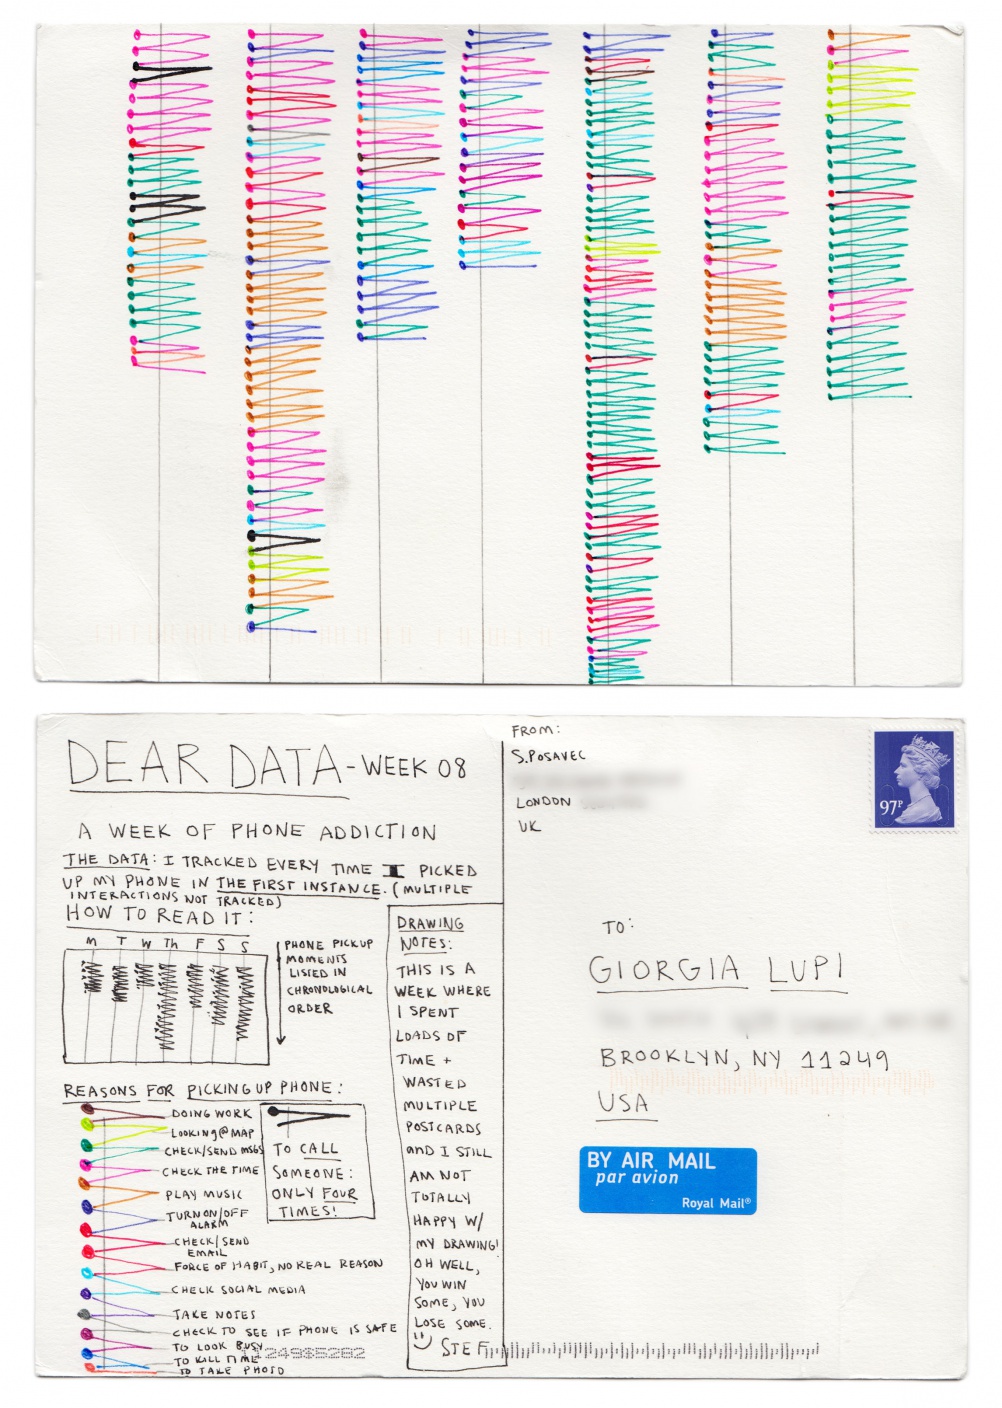 DEAR DATA - WEEK 08
A WEEK OF PHONE ADDICTION
THE DATA: I TRACKED EVERY TIME I PICKED
UP MY PHONE IN THE FIRST INSTANCE. (MULTIPLE
INTERACTIONS NOT TRACKED)
HOW TO READ IT:
M T W Th F S S
PHONE PICKUP
MOMENTS
LISTED IN
CHRONOLOGICAL
ORDER
REASONS FOR PICKING UP PHONE:
DOING WORK
LOOKING@MAP
CHECK/SEND MSGS
CHECK THE TIME
PLAY MUSIC
TURN ON/OFF
ALARM
CHECK/SEND
EMAIL
FORCE OF HABIT, NO REAL REASON
CHECK SOCIAL MEDIA
TAKE NOTES
CHECK TO SEE IF PHONE IS SAFE
TO LOOK BUSY
TO KILL TIME
TO TAKE PHOTO
TO CALL
SOMEONE:
ONLY FOUR
TIMES!
DRAWING
NOTES:
THIS IS A
WEEK WHERE
I SPENT
LOADS OF
TIME +
WASTED
MULTIPLE
POSTCARDS
AND I STILL
AM NOT
TOTALLY
HAPPY W/
MY DRAWING!
OH WELL,
YOU WIN
SOME, YOU
LOSE SOME.
STEF
FROM:
S.POSAVEC
LONDON
UK
97P
TO:
GIORGIA LUPI
BROOKLYN, NY 11249
USA
BY AIR MAIL
par avion
Royal Mail®